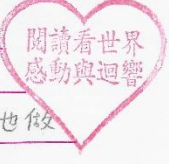 閱讀看世界
感動與迴響
也做